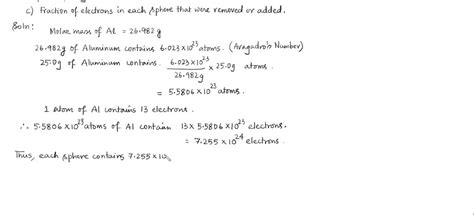 c) fraction of electrons in each sphere that were removed or added.
Soln: Molar mass of Al = 26.982g
26.982g of Aluminum contains 6.023×10²³ atoms. (Avagadro's Number)
25.0g of Aluminum contains. 6.023×10²³ / 26.982g × 25.0g atoms.
= 5.5806×10²³ atoms.
1 Atom of Al contains 13 electrons.
∴ 5.5806×10²³ atoms of Al contain 13×5.5806×10²³ electrons.
= 7.255×10²⁴ electrons.
Thus, each sphere contains 7.255×10